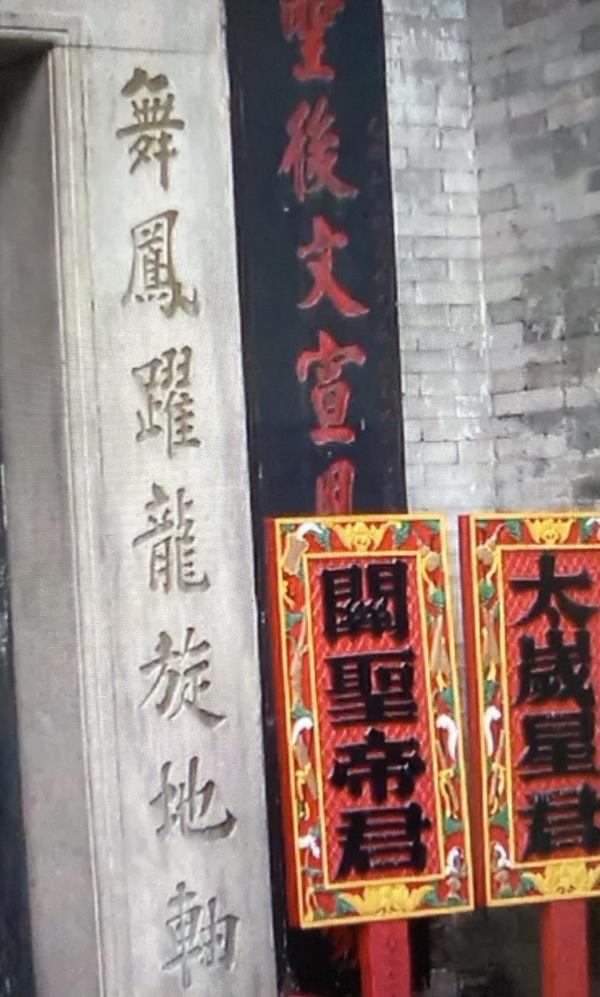 太歲星君
關聖帝君
聖後文宣
舞鳳躍龍旋地軸